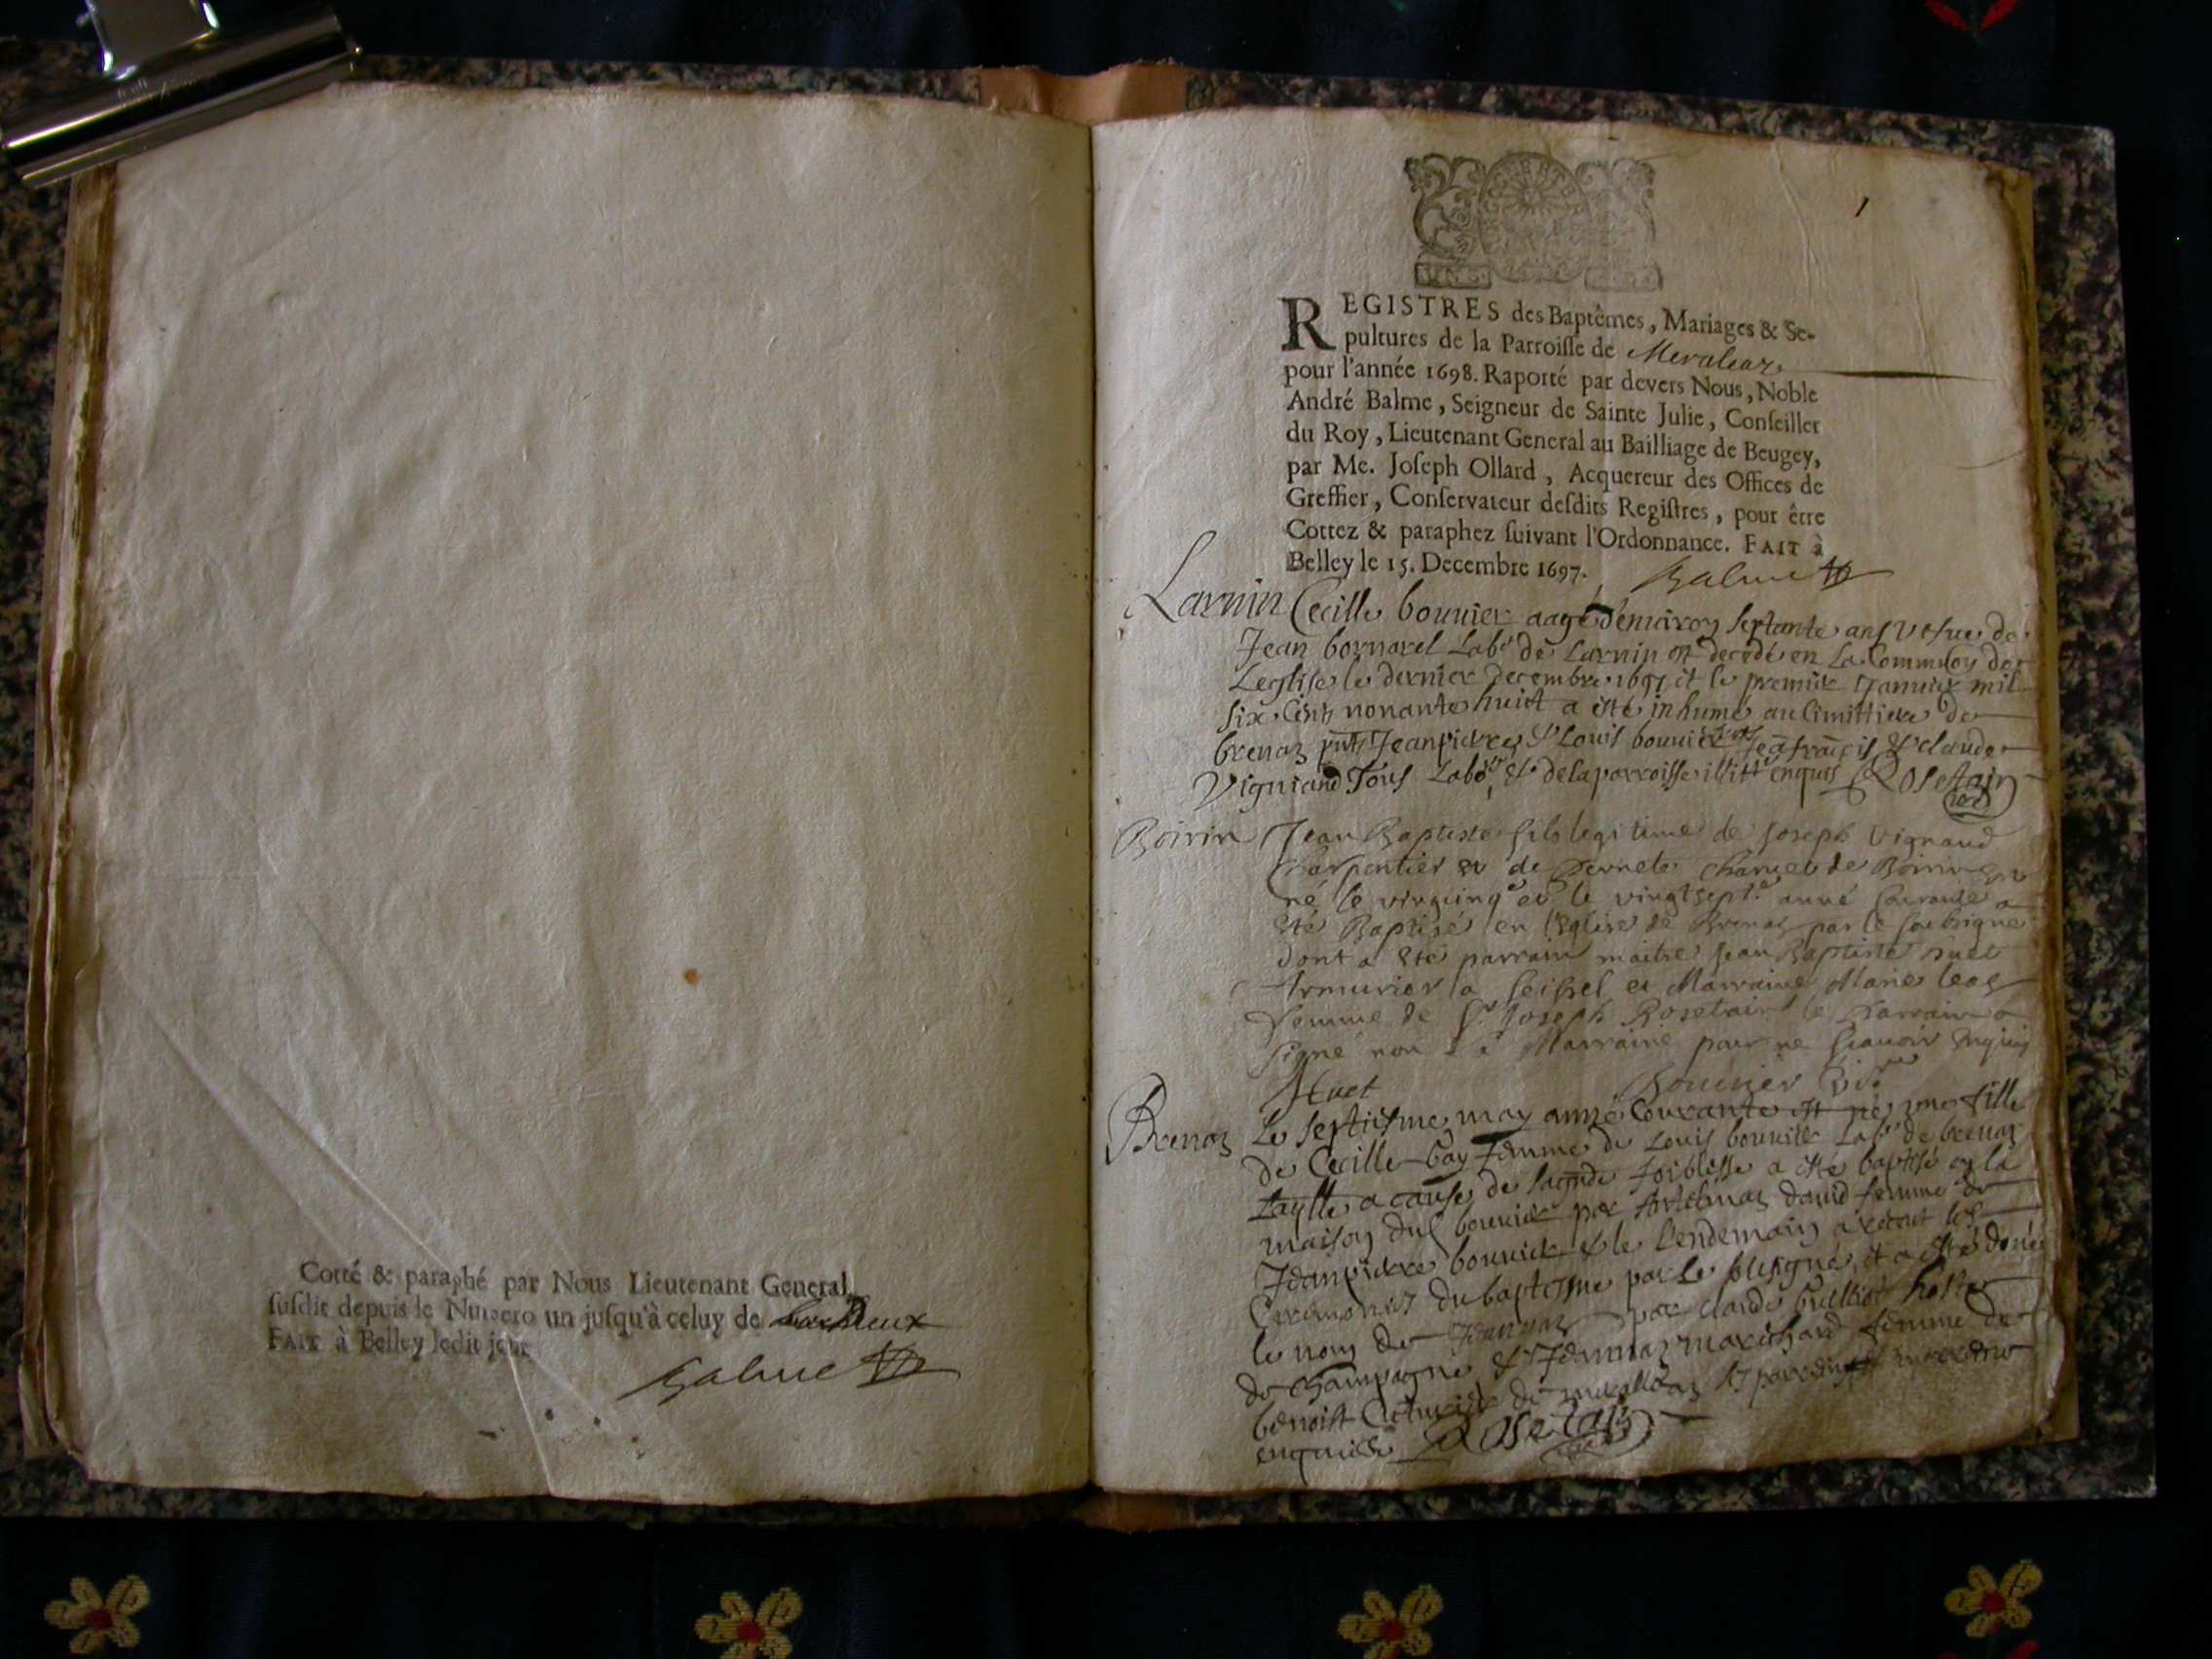 Cotté & paraphé par Nous Lieutenant General
susdit depuis le Numero un jusqu'à celuy de
FAIT à Belley ledit jour
Balme
1
REGISTRES des Baptêmes, Mariages & Se-
pultures de la Parroisse de
pour l'année 1698. Raporté par devers Nous, Noble
André Balme, Seigneur de Sainte Julie, Conseiller
du Roy, Lieutenant General au Bailliage de Beugey,
par Me. Joseph Ollard, Acquereur des Offices de
Greffier, Conservateur desdits Registres, pour être
Cottez & paraphez suivant l'Ordonnance. FAIT à
Belley le 15. Decembre 1697.
Balme
Larnin Cecille bouvier aagé denuiron septante ans vefue de
Jean bornarel Labr de Larnin est decedé en La Commuion de
Leglise le dernier decembre 1697 et le premier Januier mil
six Cent nonante huict a esté inhumé au Cimittiere de
brenaz pnts Jeanpierre & Louis bouvier Jeã frãçois & claude
Vigniand Tous Labrs & de la parroisse enquis Rosetain
Boirin Jean Baptiste fils legitime de Joseph Vignand
Charpentier et de Pernete Chancel de Boirin
né le vingcinqe et le vingtsept.e anné Courante a
été Baptisé en l'Eglise de Brenaz par le soubsigné
dont a été parrain maitre Jean Baptiste huet
Armurier a Seissel et Marraine Marie
femme de Sr. Joseph Rosetain le Parrain a
signé non la Marraine pour ne scavoir enquis
Huet Bouvier
Brenaz Le septiesme may anné Courante est né une fille
de Cecille bay femme de Louis bouvier Labr de brenaz
Laqlle a cause de sa grãde foiblesse a esté baptisé en la
maison dud bouvier par Anthelmaz dauid femme de
Jeanpierre bouvier & le Lendemain a receut les
Ceremonies du baptesme par Le soussigné, et a esté donné
le nom de Jeannaz par claude hoste
de champagne & Jeannaz marichand femme de
benoist de parrain marraine
enquis Rosetain